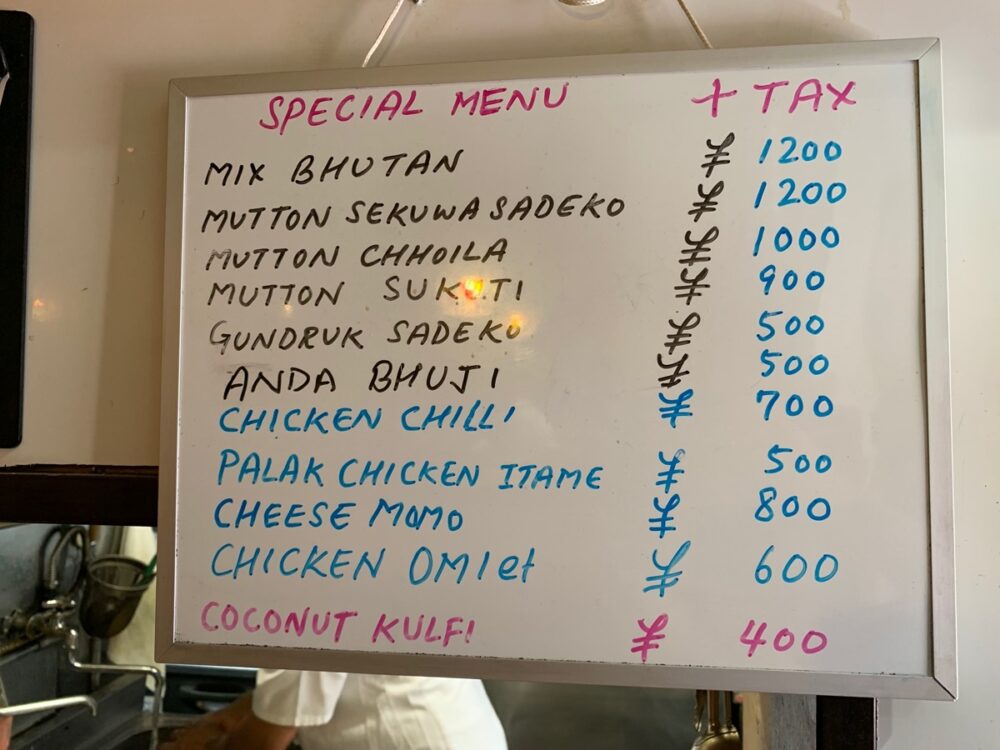 SPECIAL MENU + TAX
MIX BHUTAN ¥ 1200
MUTTON SEKUWA SADEKO ¥ 1200
MUTTON CHHOILA ¥ 1000
MUTTON SUKUTI ¥ 900
GUNDRUK SADEKO ¥ 500
ANDA BHUJI ¥ 500
CHICKEN CHILLI ¥ 700
PALAK CHICKEN ITAME ¥ 500
CHEESE MOMO ¥ 800
CHICKEN OMlet ¥ 600
COCONUT KULFI ¥ 400